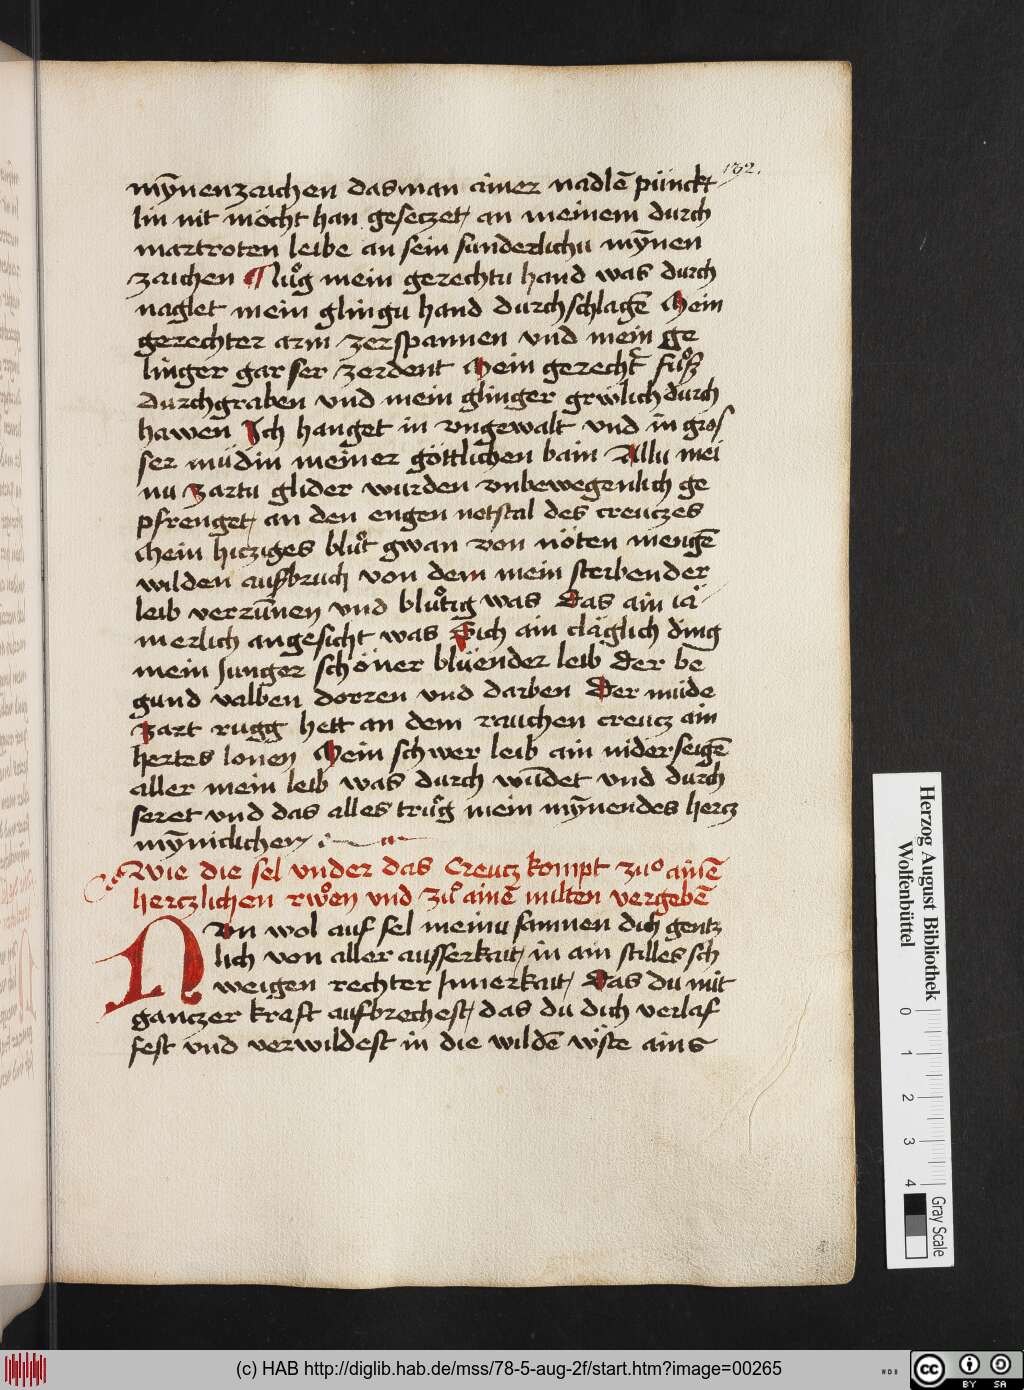 132.
mÿnenzaichen das man ainer nadlē pünckt
lin nit möcht han geseczet an meinem durch
martroten leibe an sein sunderlichu mÿnen
zaichen ¶ luͦg mein gerechtu hand was durch
naglet mein glingu hand durchschlagē Mein
gerechter arm zerspannen vnd mein ge
linger gar ser zerdent Mein gerecht̄ fuͦß
durchgraben vnd mein glinger grwlich durch
hawen Ich hanget in vngewalt vnd in gros
ser müdin meiner göttlichen bain Allu mei
nu zartu glider wurden vnbewegenlich ge
pfrenget an den engen notstal des creuczes
Mein hicziges bluͦt gwan von nöten mengē
wilden aufbruch von dem mein sterbender
leib verrūnen vnd bluͦtig was Das ain iä
merlich angesicht was Sich ain cläglich ding
mein Junger schöner blüender leib der be
gund valben dorren vnd darben Der müde
zart rugg hett an dem rauchen creucz ain
hertes lonen Mein schwer leib ain niderseigē
aller mein leib was durch wūdet vnd durch
seret vnd das alles truͦg mein mÿnendes hercz
mÿniclichen
Wie die sel vnder das Creucz kompt zuͦ ainē
herczlichen rwͦen vnd zuͦ ainē milten vergebē
Nun wol auf sel meinu samnen dich gentz
lich von aller ausserkait in ain stilles sch
weigen rechter Jnnerkait Das du mit
ganczer kraft aufbrechest das du dich verlas
sest vnd verwildest in die wildē wͦste ains
Herzog August Bibliothek
Wolfenbüttel
0 1 2 3 4
Gray Scale
(c) HAB http://diglib.hab.de/mss/78-5-aug-2f/start.htm?image=00265
cc BY SA